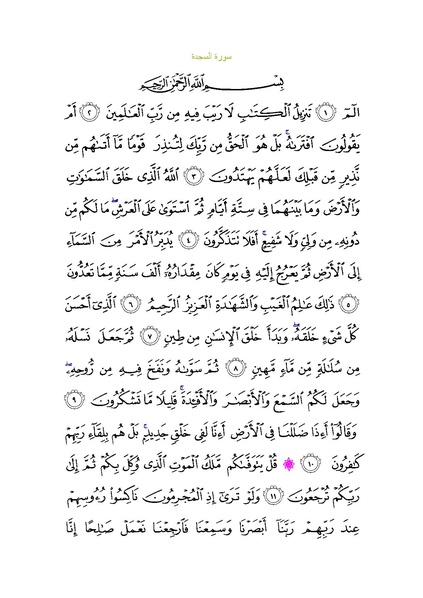 سورة السجدة
بِسْمِ اللَّهِ الرَّحْمَٰنِ الرَّحِيمِ
الٓمٓ ١ تَنزِيلُ ٱلْكِتَٰبِ لَا رَيْبَ فِيهِ مِن رَّبِّ ٱلْعَٰلَمِينَ ٢ أَمْ
يَقُولُونَ ٱفْتَرَىٰهُ ۚ بَلْ هُوَ ٱلْحَقُّ مِن رَّبِّكَ لِتُنذِرَ قَوْمًا مَّآ أَتَىٰهُم مِّن
نَّذِيرٍ مِّن قَبْلِكَ لَعَلَّهُمْ يَهْتَدُونَ ٣ ٱللَّهُ ٱلَّذِى خَلَقَ ٱلسَّمَٰوَٰتِ
وَٱلْأَرْضَ وَمَا بَيْنَهُمَا فِى سِتَّةِ أَيَّامٍ ثُمَّ ٱسْتَوَىٰ عَلَى ٱلْعَرْشِ ۖ مَا لَكُم مِّن
دُونِهِۦ مِن وَلِىٍّ وَلَا شَفِيعٍ ۚ أَفَلَا تَتَذَكَّرُونَ ٤ يُدَبِّرُ ٱلْأَمْرَ مِنَ ٱلسَّمَآءِ
إِلَى ٱلْأَرْضِ ثُمَّ يَعْرُجُ إِلَيْهِ فِى يَوْمٍ كَانَ مِقْدَارُهُۥٓ أَلْفَ سَنَةٍ مِّمَّا تَعُدُّونَ
٥ ذَٰلِكَ عَٰلِمُ ٱلْغَيْبِ وَٱلشَّهَٰدَةِ ٱلْعَزِيزُ ٱلرَّحِيمُ ٦ ٱلَّذِىٓ أَحْسَنَ
كُلَّ شَىْءٍ خَلَقَهُۥ ۖ وَبَدَأَ خَلْقَ ٱلْإِنسَٰنِ مِن طِينٍ ٧ ثُمَّ جَعَلَ نَسْلَهُۥ
مِن سُلَٰلَةٍ مِّن مَّآءٍ مَّهِينٍ ٨ ثُمَّ سَوَّىٰهُ وَنَفَخَ فِيهِ مِن رُّوحِهِۦ ۖ
وَجَعَلَ لَكُمُ ٱلسَّمْعَ وَٱلْأَبْصَٰرَ وَٱلْأَفْـِٔدَةَ ۚ قَلِيلًا مَّا تَشْكُرُونَ ٩
وَقَالُوٓا۟ أَءِذَا ضَلَلْنَا فِى ٱلْأَرْضِ أَءِنَّا لَفِى خَلْقٍ جَدِيدٍۭ ۚ بَلْ هُم بِلِقَآءِ رَبِّهِمْ
كَٰفِرُونَ ١٠ ۞ قُلْ يَتَوَفَّىٰكُم مَّلَكُ ٱلْمَوْتِ ٱلَّذِى وُكِّلَ بِكُمْ ثُمَّ إِلَىٰ
رَبِّكُمْ تُرْجَعُونَ ١١ وَلَوْ تَرَىٰٓ إِذِ ٱلْمُجْرِمُونَ نَاكِسُوا۟ رُءُوسِهِمْ
عِندَ رَبِّهِمْ رَبَّنَآ أَبْصَرْنَا وَسَمِعْنَا فَٱرْجِعْنَا نَعْمَلْ صَٰلِحًا إِنَّا